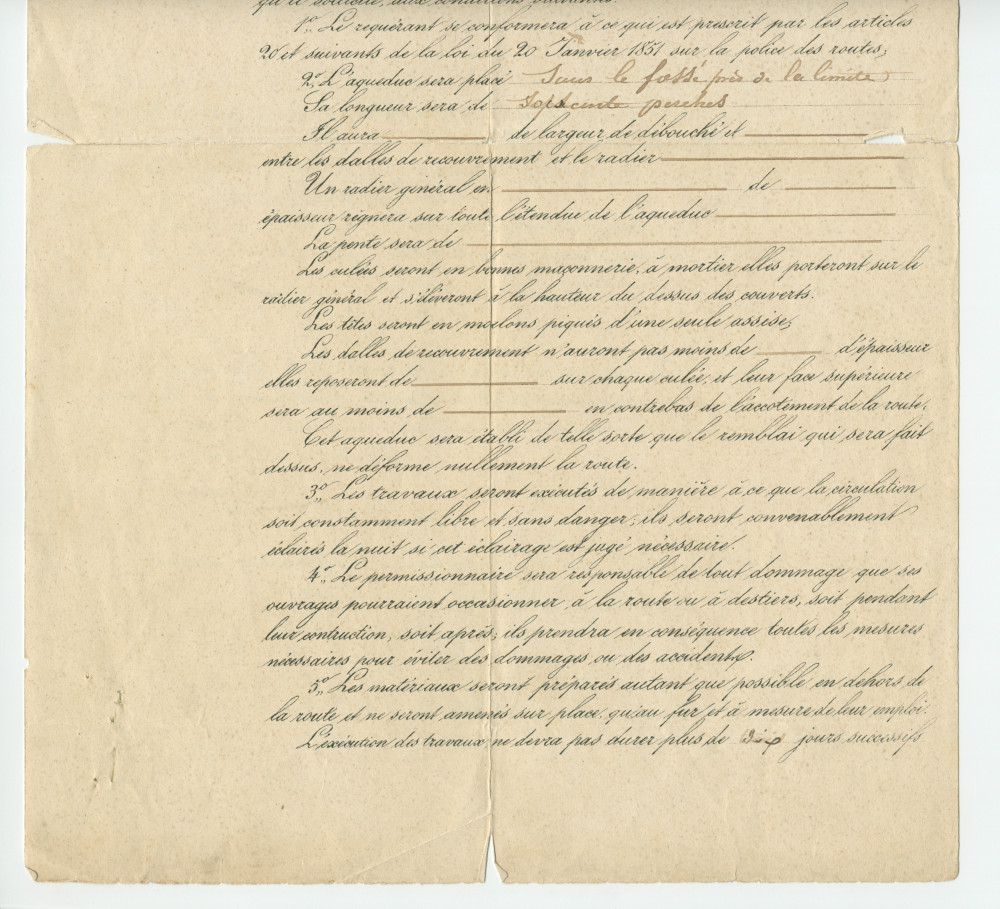 qu'il sollicite, aux conditions suivantes:
1º. Le requérant se conformera à ce qui est prescrit par les articles
20 et suivants de la loi du 20 Janvier 1851 sur la police des routes;
2º. L'aqueduc sera placé sous le fossé près de la limite
Sa longueur sera de soixante perches
Il aura de largeur de débouché et
entre les dalles de recouvrement et le radier
Un radier général en de
épaisseur règnera sur toute l'étendue de l'aqueduc
La pente sera de
Les culées seront en bonnes maçonnerie, à mortier elles porteront sur le
radier général et s'élèveront à la hauteur du dessus des couverts.
Les têtes seront en moelons piqués d'une seule assise;
Les dalles de recouvrement n'auront pas moins de d'épaisseur
elles reposeront de sur chaque culée, et leur face supérieure
sera au moins de en contrebas de l'accotement de la route.
Cet aqueduc sera établi de telle sorte que le remblai qui sera fait
dessus, ne déforme nullement la route.
3º. Les travaux seront exécutés de manière à ce que la circulation
soit constamment libre et sans danger; ils seront convenablement
éclairés la nuit si cet éclairage est jugé nécessaire.
4º. Le permissionnaire sera responsable de tout dommage que ses
ouvrages pourraient occasionner à la route ou à destiers, soit pendant
leur contruction, soit après; ils prendra en conséquence toutes les mesures
nécessaires pour éviter des dommages ou des accidents.
5º. Les matériaux seront préparés autant que possible en dehors de
la route et ne seront amenés sur place qu'au fur et à mesure de leur emploi.
L'exécution des travaux ne devra pas durer plus de dix jours successifs